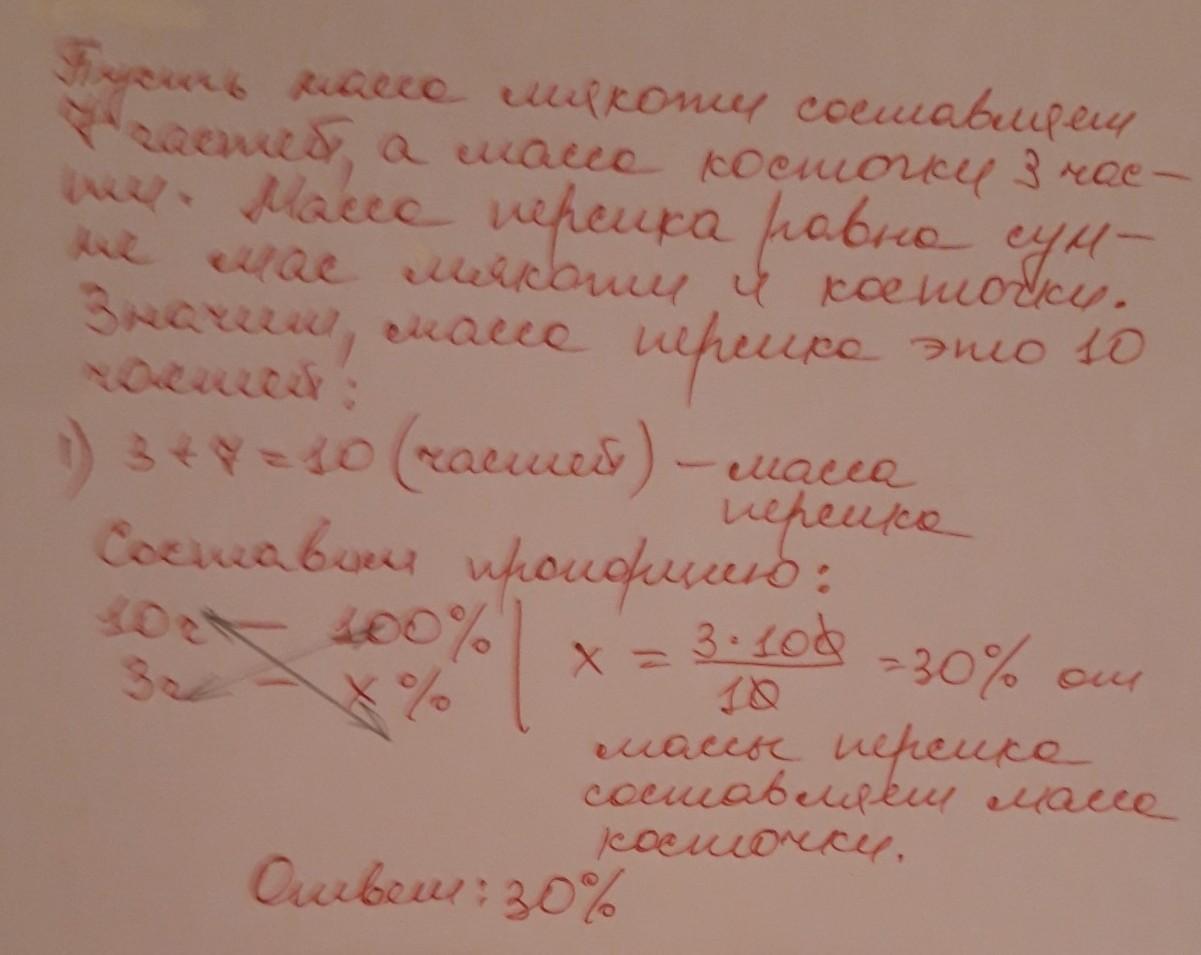 Пусть масса мякоти составляет
7 частей, а масса косточки 3 час-
ти. Масса персика равна сум-
ме мас мякоти и косточки.
Значит, масса персика это 10
частей:
1) 3+7=10 (частей) – масса
персика
Составим пропорцию:
10г — 100% | x = 3·100/10 =30% от
3г — x%
массы персика
составляет масса
косточки.
Ответ: 30%